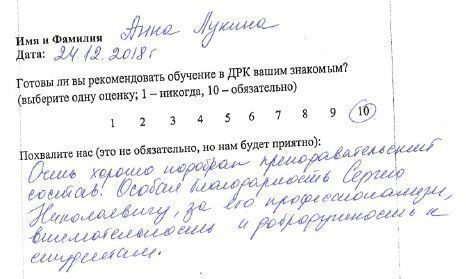 Имя и Фамилия Анна Лукина
Дата: 24.12.2018г
Готовы ли вы рекомендовать обучение в ДРК вашим знакомым?
(выберите одну оценку; 1 – никогда, 10 – обязательно)
1 2 3 4 5 6 7 8 9 10
Похвалите нас (это не обязательно, но нам будет приятно):
Очень хорошо подобран преподавательский
состав! Особая благодарность Сергею
Николаевичу, за его профессионализм,
внимательность и добродушность к
студентам.